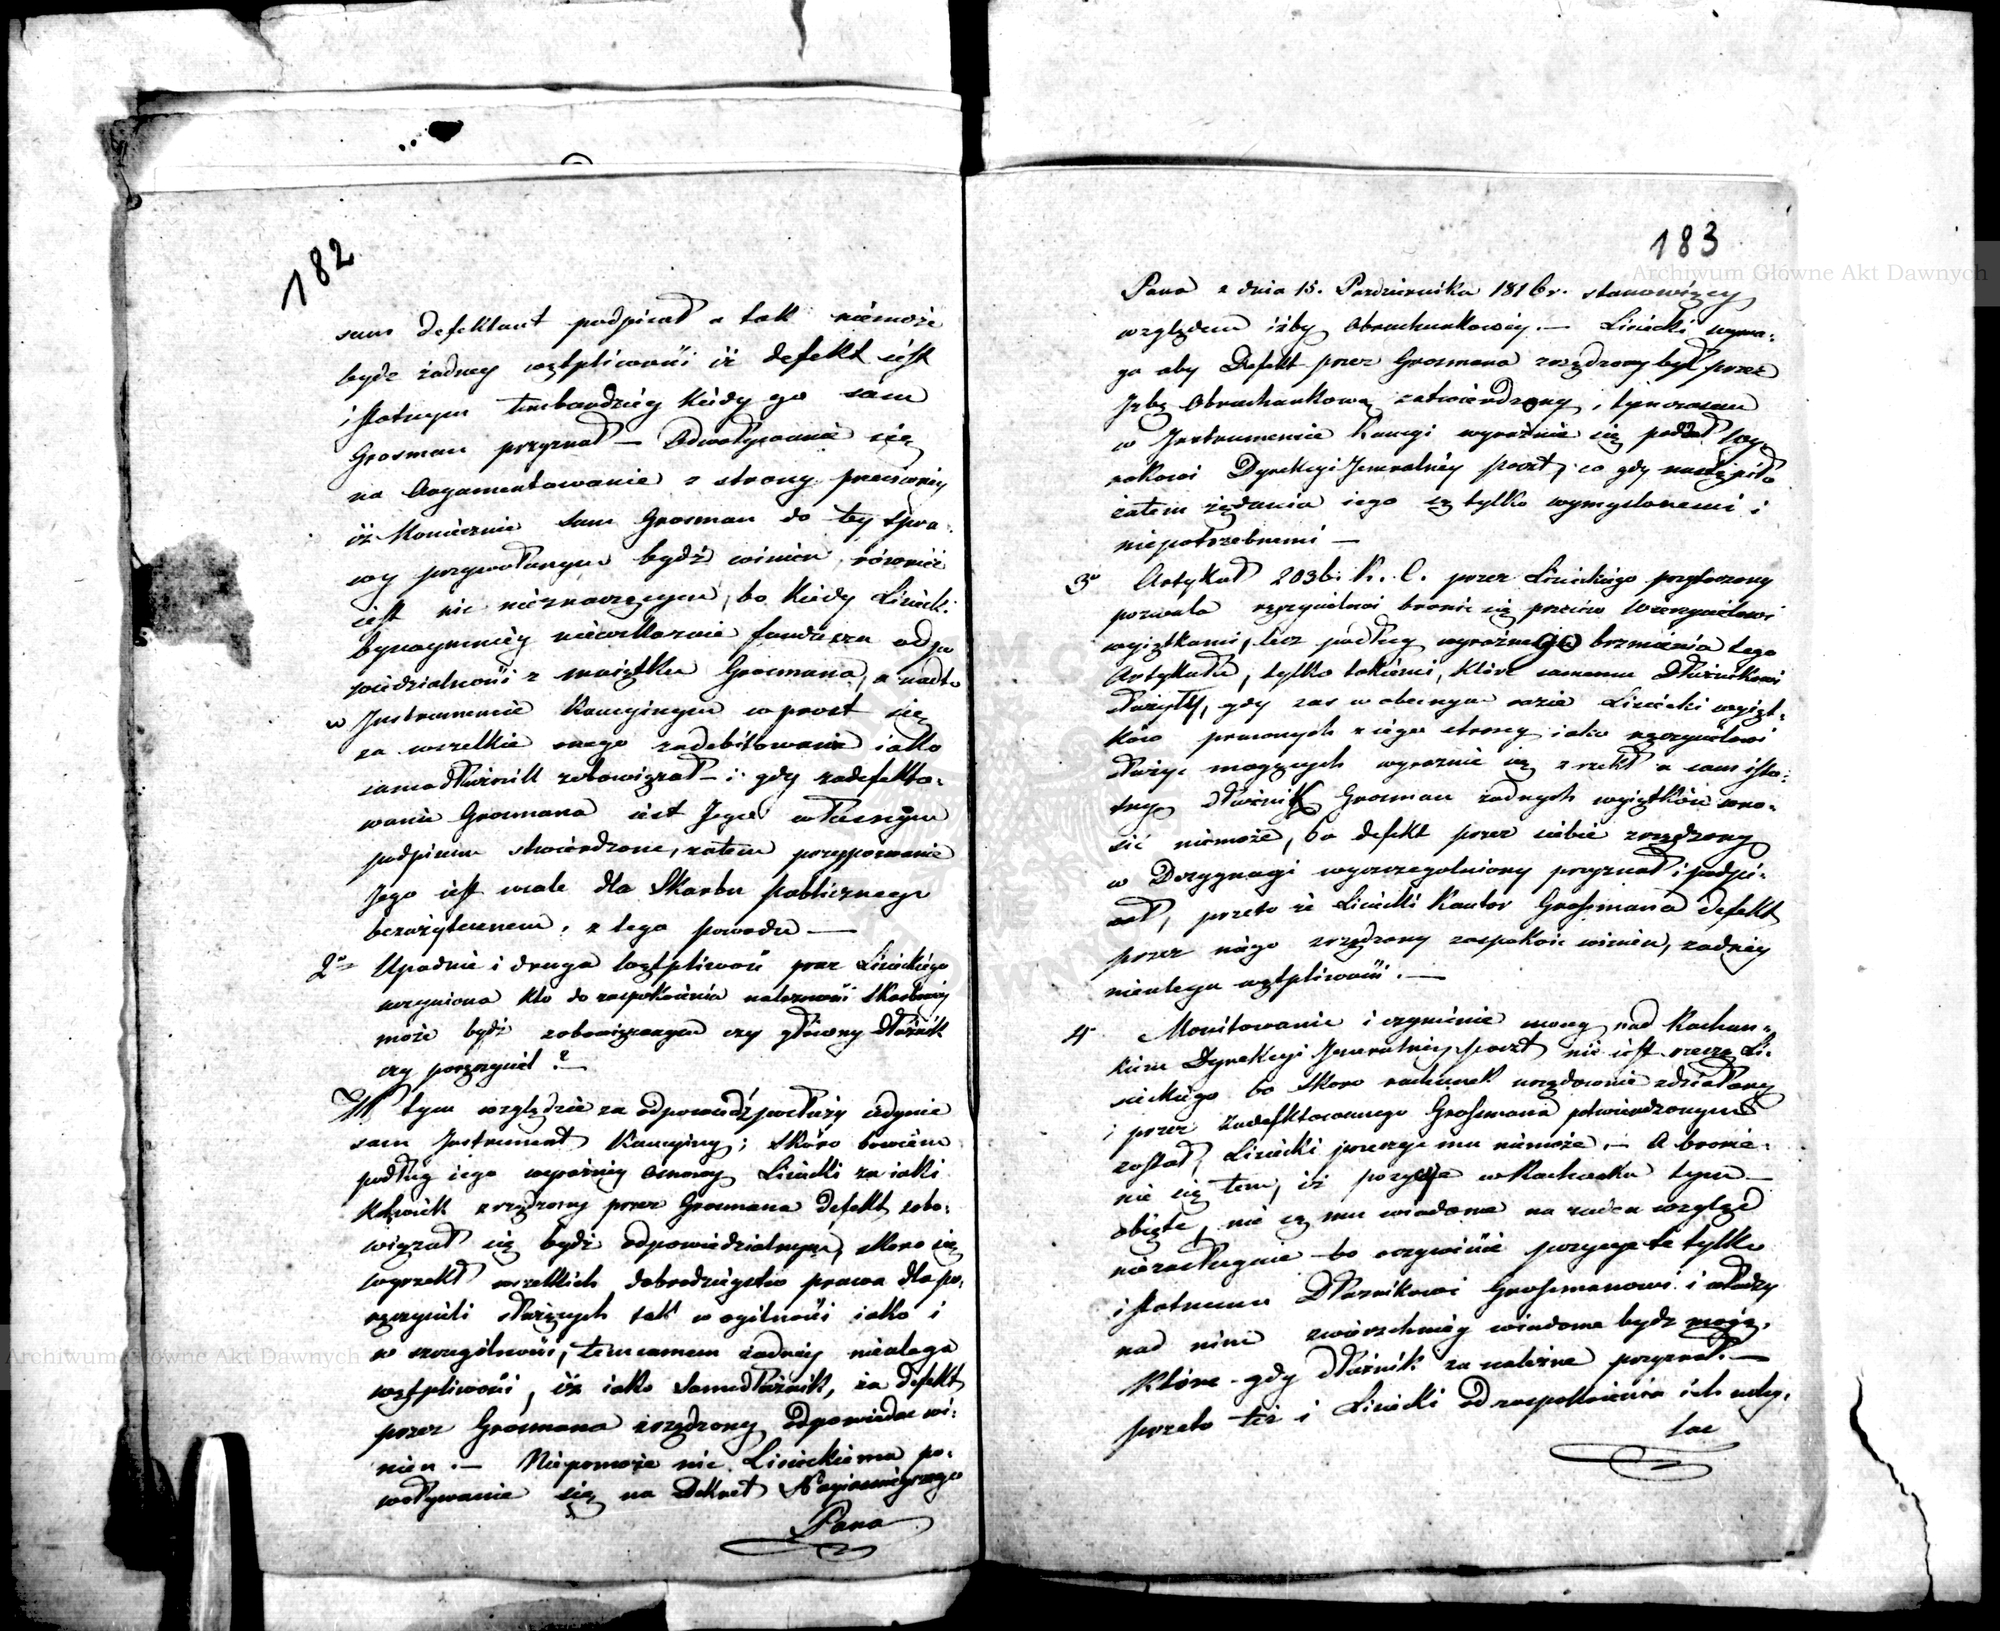 182
sam defektant podpisał a tak niemoże
bydź żadney wątpliwości iż defekt iest
istotnym tembardziey kiedy go sam
Grosman przyznał — Odwoływanie się
na Argumentowanie z strony przeciwney
iż koniecznie sam Grosman do tey spra-
wy przywołanym bydź winien, również
iest nic nieznaczącym, bo kiedy Lisiecki
bynaymniey niewskazuie funduszu odpo
wiedzialności z maiątku Grosmana, a nadto
w Instrumencie Kaucyinym wprost się
za wszelkie onego zadebitowanie iako
samodłużnik zobowiązał — i gdy zadefekto-
wanie Grosmana iest Jego własnym
podpisem stwierdzone, zatem przypozwanie
Jego iest wcale dla Skarbu publicznego
bezużytecznem, z tego powodu —
2° Upadnie i druga wątpliwość przez Lisieckiego
uczyniona kto do zaspokoienia należności Skarbowey
może bydź zobowiązanym czy główny dłużnik
czy poręczyciel? —
W tym względzie za odpowiedź posłuży iedynie
sam Instrument Kaucyiny; skoro bowiem
podług iego wyraźney osnowy Lisiecki za iaki
kolwiek zrządzony przez Grosmana defekt zobo-
wiązał się bydź odpowiedzialnym, skoro się
wyrzekł wszelkich dobrodzieystw prawa dla po-
ręczycieli służących tak w ogólności iako i
w szczególności, tem samem żadney nieulega
wątpliwości, iż iako samodłużnik, za defekt
przez Grosmana zrządzony odpowiadać wi-
nien. — Niepomoże nic Lisieckiemu po-
woływanie się na Dekret Nayiaśnieyszego
Pana
183
Pana z dnia 15. Pazdziernika 1816 r. stanowiący
względem izby Obrachunkowey. — Lisiecki wyma-
ga aby Defekt przez Grosmana zrządzony był przez
Izbę Obrachunkową zatwierdzony, i tymczasem
w Instrumencie Kaucyi wyraźnie się poddał wy-
rokowi Dyrekcyi Jeneralney poczt, co gdy nastąpiło
zatem żądania iego są tylko wymyslonemi i
niepotrzebnemi —
3° Artykuł 2036. K. C. przez Lisieckiego przytoczony
pozwala ręczycielowi bronić się przeciw Wierzycielowi
wyiątkami, lecz podług wyraźnego brzmienia tego
Artykułu, tylko takiemi, które samemu Dłużnikowi
służyły, gdy zas w obecnym razie Lisiecki wyiąt-
ków prawnych z iego strony iako ręczycielowi
służyć mogących wyraznie się zrzekł a sam isto-
tny dłużnik Grosman żadnych wyiątków wno-
sić niemoże, bo defekt przez siebie zrządzony
w Dezygnacyi wyszczególniony przyznał i podpi-
sał, przeto że Lisiecki Kautor Grossmana defekt
przez niego zrządzony zaspokoić winien, żadney
nieulega wątpliwości. —
4° Monitowanie i czynienie uwag nad Rachun-
kiem Dyrekcyi Jeneralney poczt nie iest rzeczą Li-
sieckiego bo skoro rachunek urzędownie zdziałany
i przez zadefektowanego Grossmana potwierdzonym
został, Lisiecki przeczyć mu niemoże. — A bronie-
nie się tem, iż pozycye w Rachunku tym
obięte, nie są mu wiadome na żaden wzgląd
niezasługuie bo oczywiście pozycye te tylko
istotnemu Dłużnikowi Grossmanowi i władzy
nad nim zwierzchniey wiadome bydź mogą,
które gdy dłużnik za należne przyznał. —
przeto też i Lisiecki od zaspokoienia ich uchy-
lać
Archiwum Główne Akt Dawnych
Archiwum Główne Akt Dawnych